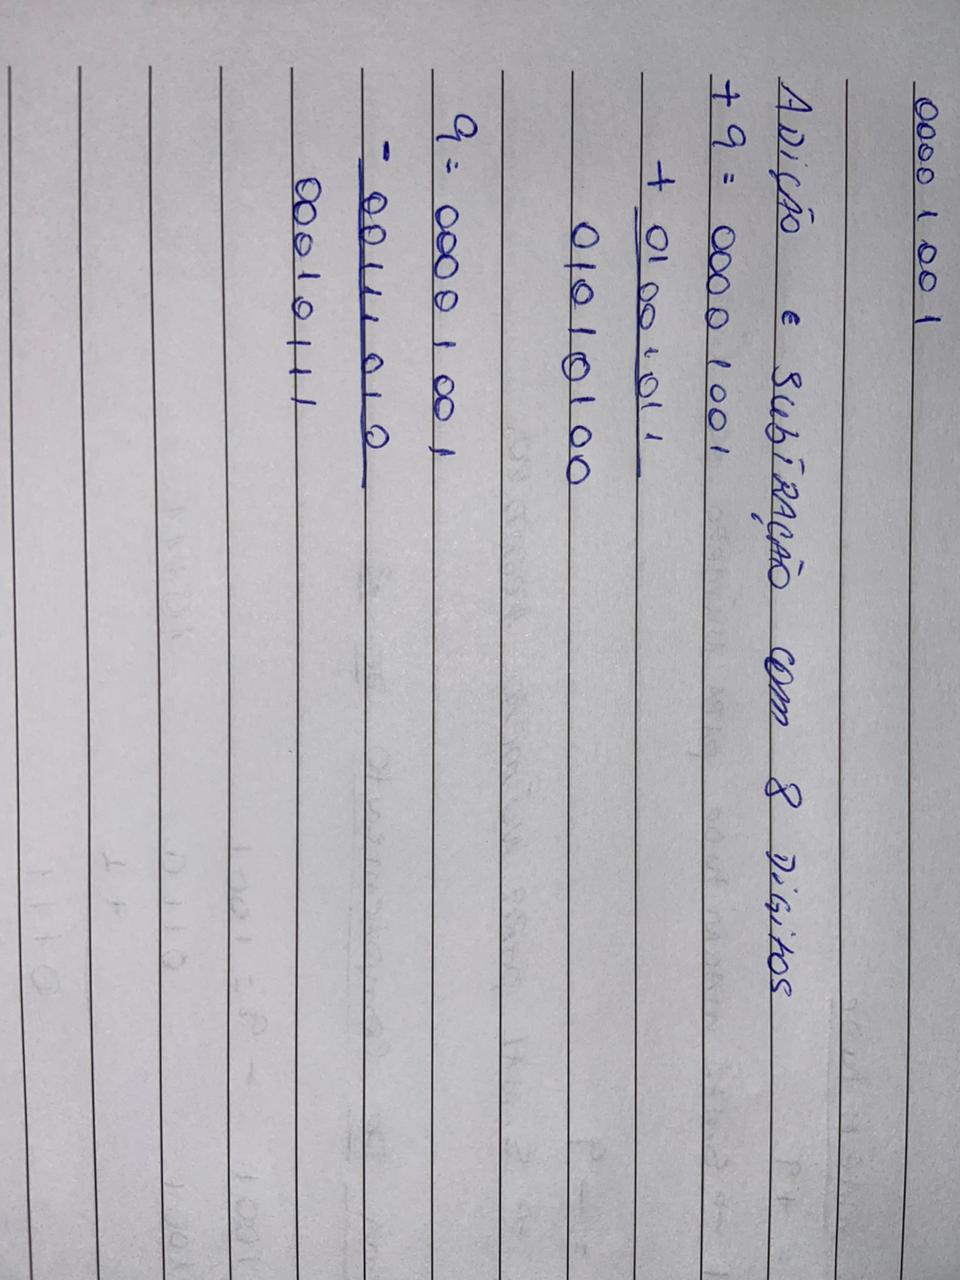 00001001
ADIÇÃO E SUBTRAÇÃO COM 8 DÍGITOS
+9 = 00001001
+ 01001011
01010100
9 = 00001001
- 00111010
00010111